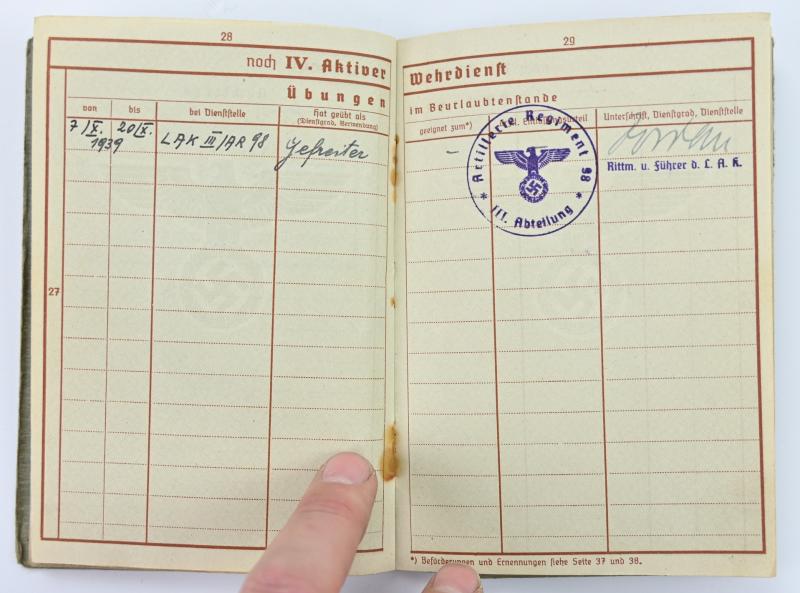 28
noch IV. Aktiver
Übungen
von
bis
bei Dienststelle
Hat geübt als
(Dienstgrad, Verwendung)
7/X.
20/X.
1939
LAK III/AR 98
Gefreiter
27
29
Wehrdienst
im Beurlaubtenstande
geeignet zum*)
Unterschrift, Dienstgrad, Dienststelle
–
* Artillerie Regiment 98 *
III. Abteilung
Rittm. u. Führer d. L. A. K.
*) Beförderungen und Ernennungen siehe Seite 37 und 38.